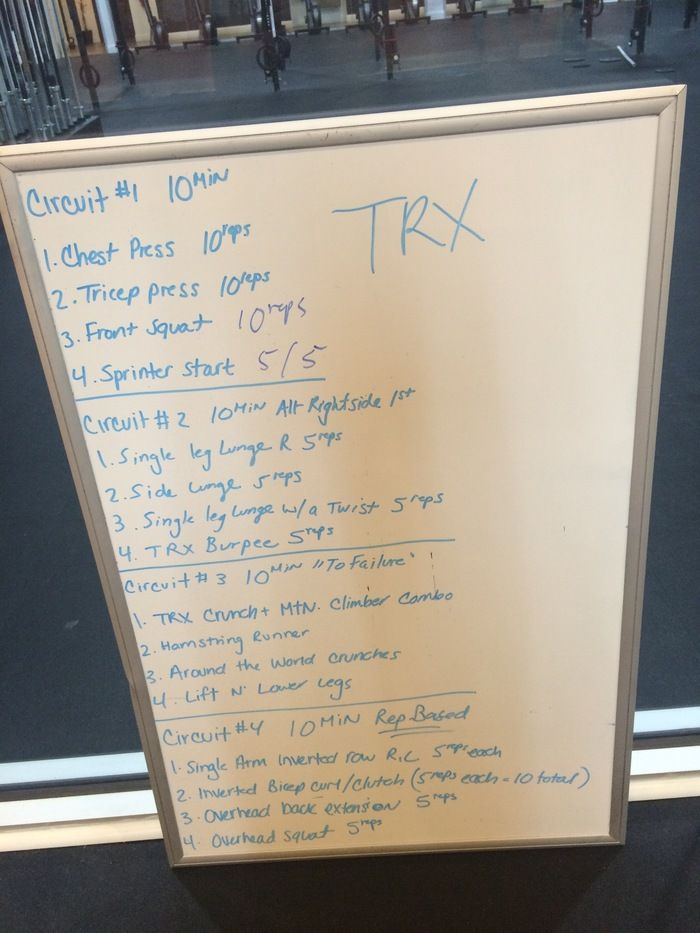 Circuit #1 10 Min
TRX
1. Chest Press 10 reps
2. Tricep press 10 reps
3. Front Squat 10 reps
4. Sprinter start 5/5
Circuit #2 10 Min Alt Right side 1st
1. Single leg Lunge R 5 reps
2. Side Lunge 5 reps
3. Single leg lunge w/a Twist 5 reps
4. TRX Burpee 5 reps
Circuit #3 10 Min "To Failure"
1. TRX Crunch + MTN. Climber Combo
2. Hamstring Runner
3. Around the World crunches
4. Lift N' Lower Legs
Circuit #4 10 Min Rep Based
1. Single Arm Inverted row R,L 5 reps each
2. Inverted Bicep curl/clutch (5 reps each = 10 total)
3. Overhead back extension 5 reps
4. Overhead squat 5 reps